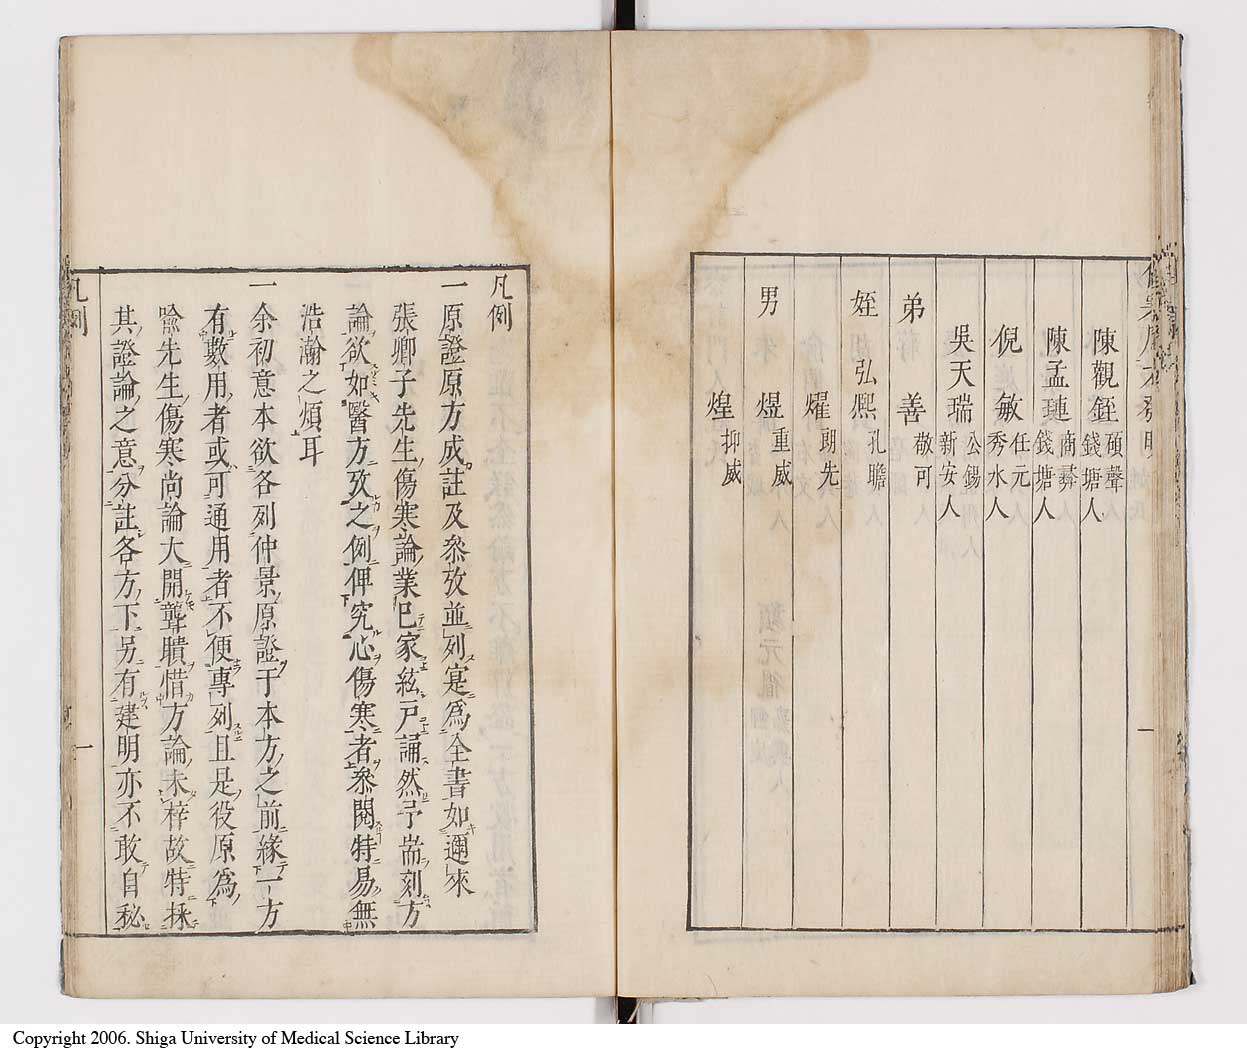 陳觀銍 碩聲 錢塘人
陳孟璉 商彛 錢塘人
倪敏 任元 秀水人
吳天瑞 公錫 新安人
弟 善 敬可
姪 弘熈 孔瞻
燿 朗先
男 煜 重威
煌 抑威
一
凡例
一原證原方成註及叅攷並列寔爲全書如邇來
張卿子先生傷寒論業已家絃戸誦然予耑刻方
論欲如醫方攷之例俾究心傷寒者叅閱特易無
浩瀚之煩耳
一余初意本欲各列仲景原證于本方之前緣一方
有數用者或可通用者不便專列且是役原爲
喩先生傷寒尚論大開聾聵惜方論未梓故特拯
其證論之意分註各方下另有建明亦不敢自秘
凡例
一
Copyright 2006. Shiga University of Medical Science Library